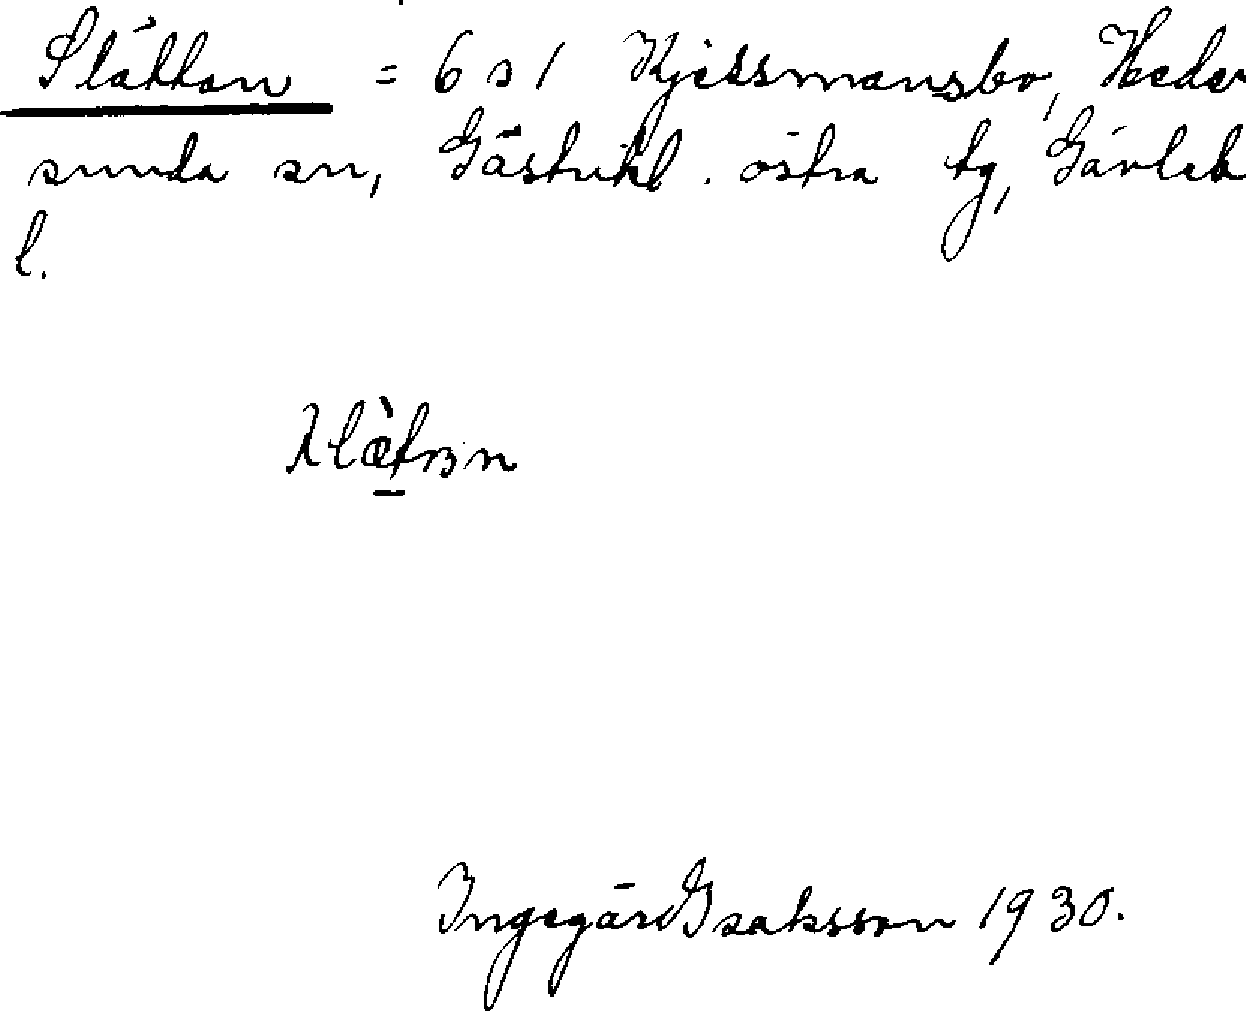 Slättan = 6 s 1 Kjettsmansbo, Heder
sunda sn, Gästrikl. östra tg, Gävleb
l.
Ingegärd Isaksson 1930.